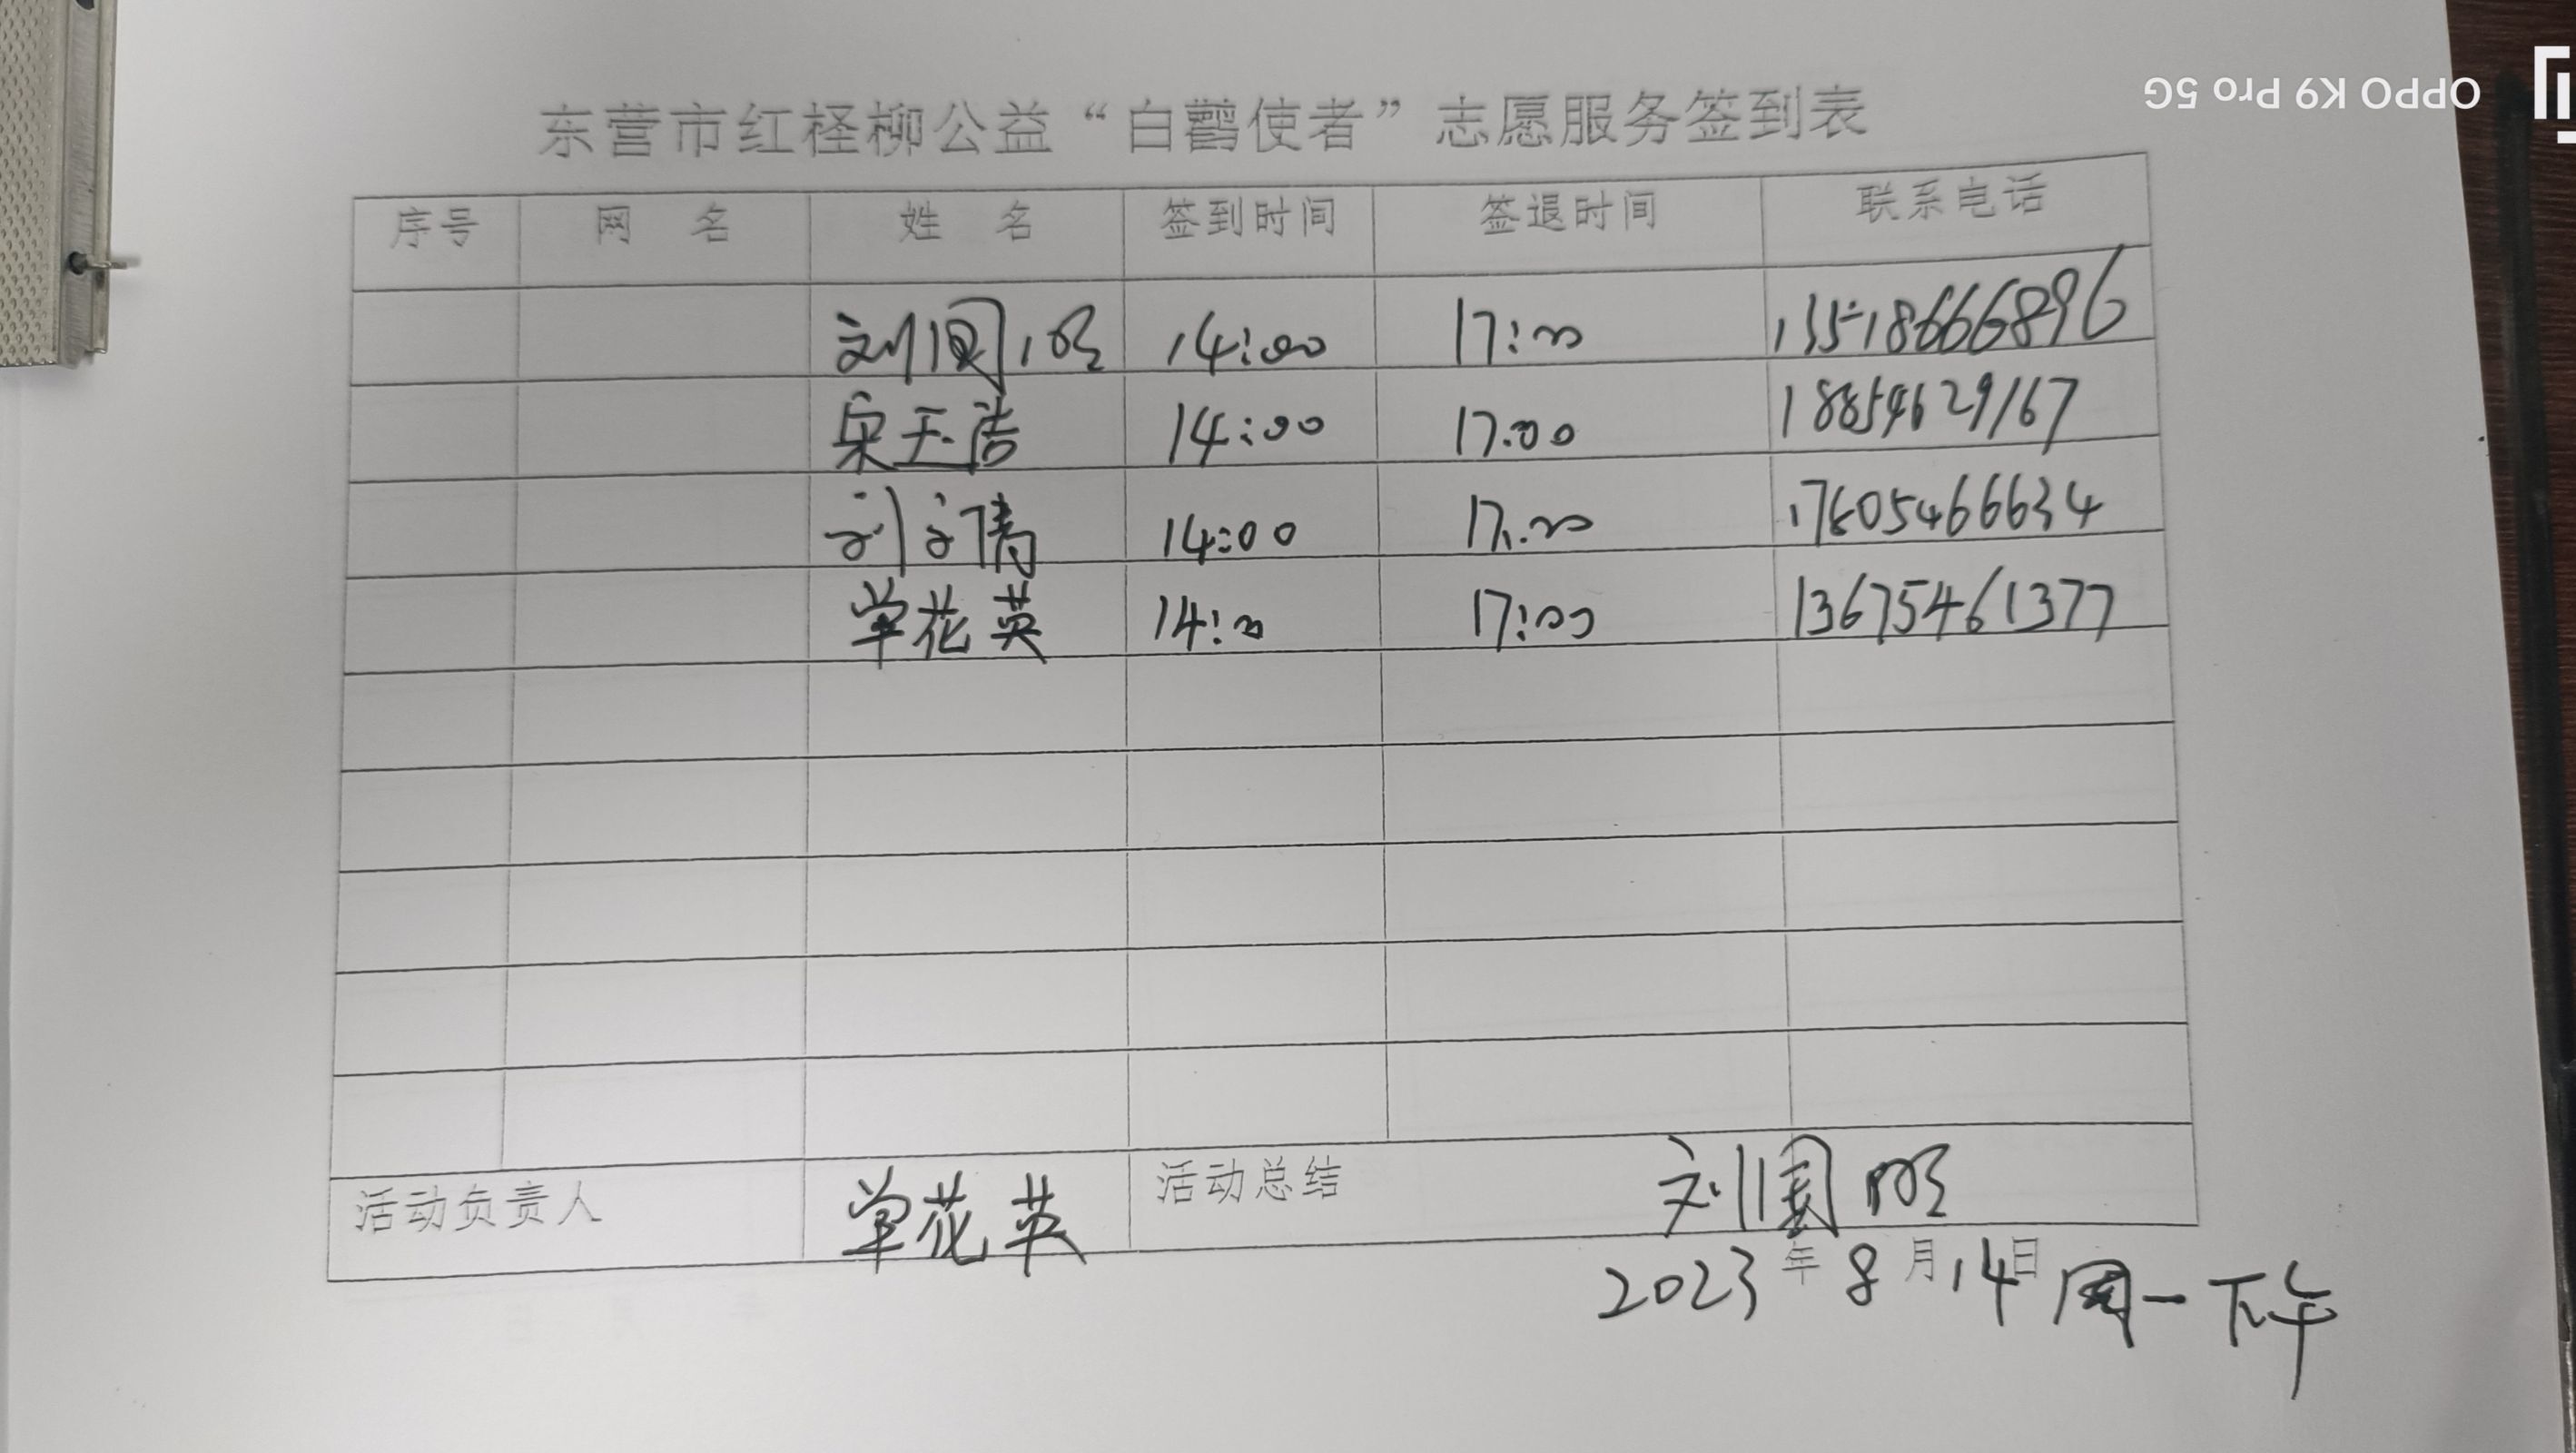 OPPO K9 Pro 5G
东营市红柽柳公益“白鹳使者”志愿服务签到表
序号 网 名 姓 名 签到时间 签退时间 联系电话
刘国明 14:00 17:00 13518666896
宋玉浩 14:00 17:00 18854629167
刘 14:00 17:00 17605466634
单花英 14:00 17:00 13675461377
活动负责人 单花英 活动总结 刘国明
2023年8月14日 周一下午